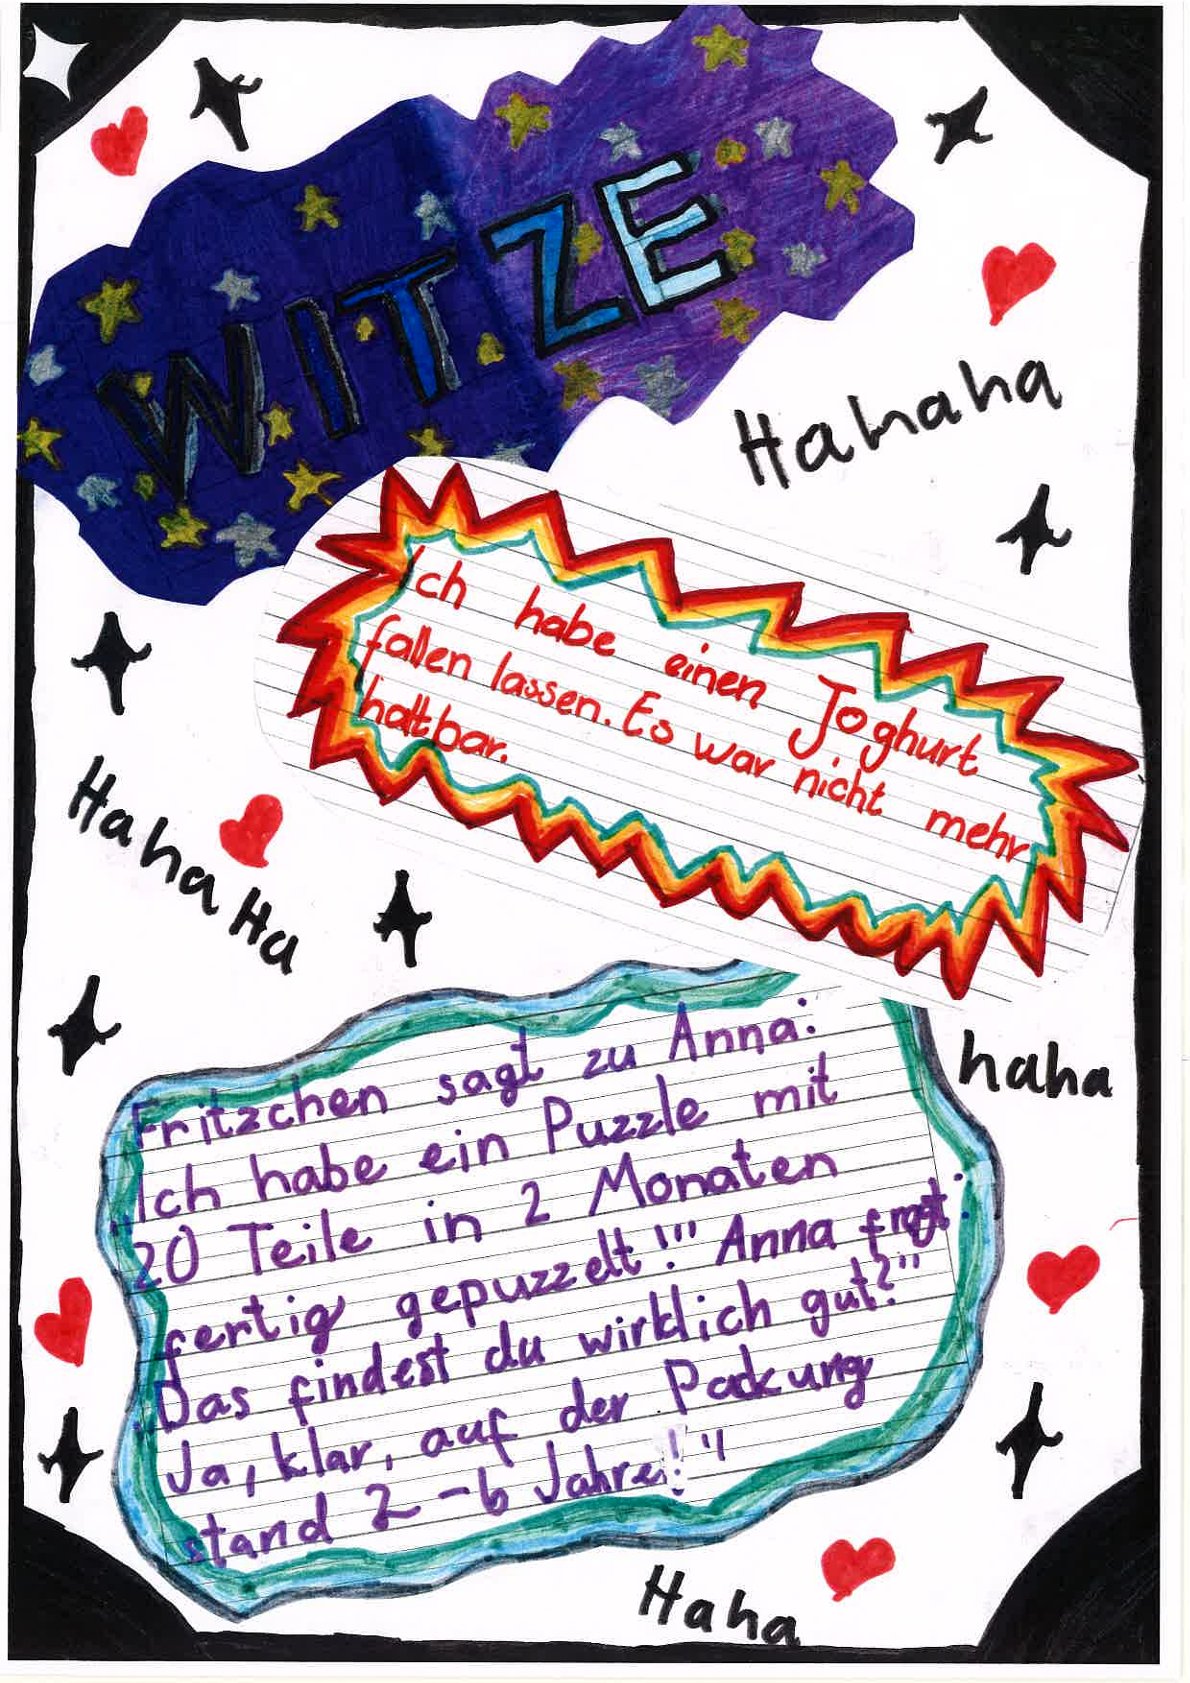 WITZE
Hahaha
Ich habe einen Joghurt
fallen lassen. Es war nicht mehr
haltbar.
HahaHa
haha
Fritzchen sagt zu Anna:
Ich habe ein Puzzle mit
"20 Teile in 2 Monaten
fertig gepuzzelt!!" Anna fragt:
„Das findest du wirklich gut?"
Ja, klar, auf der Packung
stand 2-6 Jahre!"
Haha